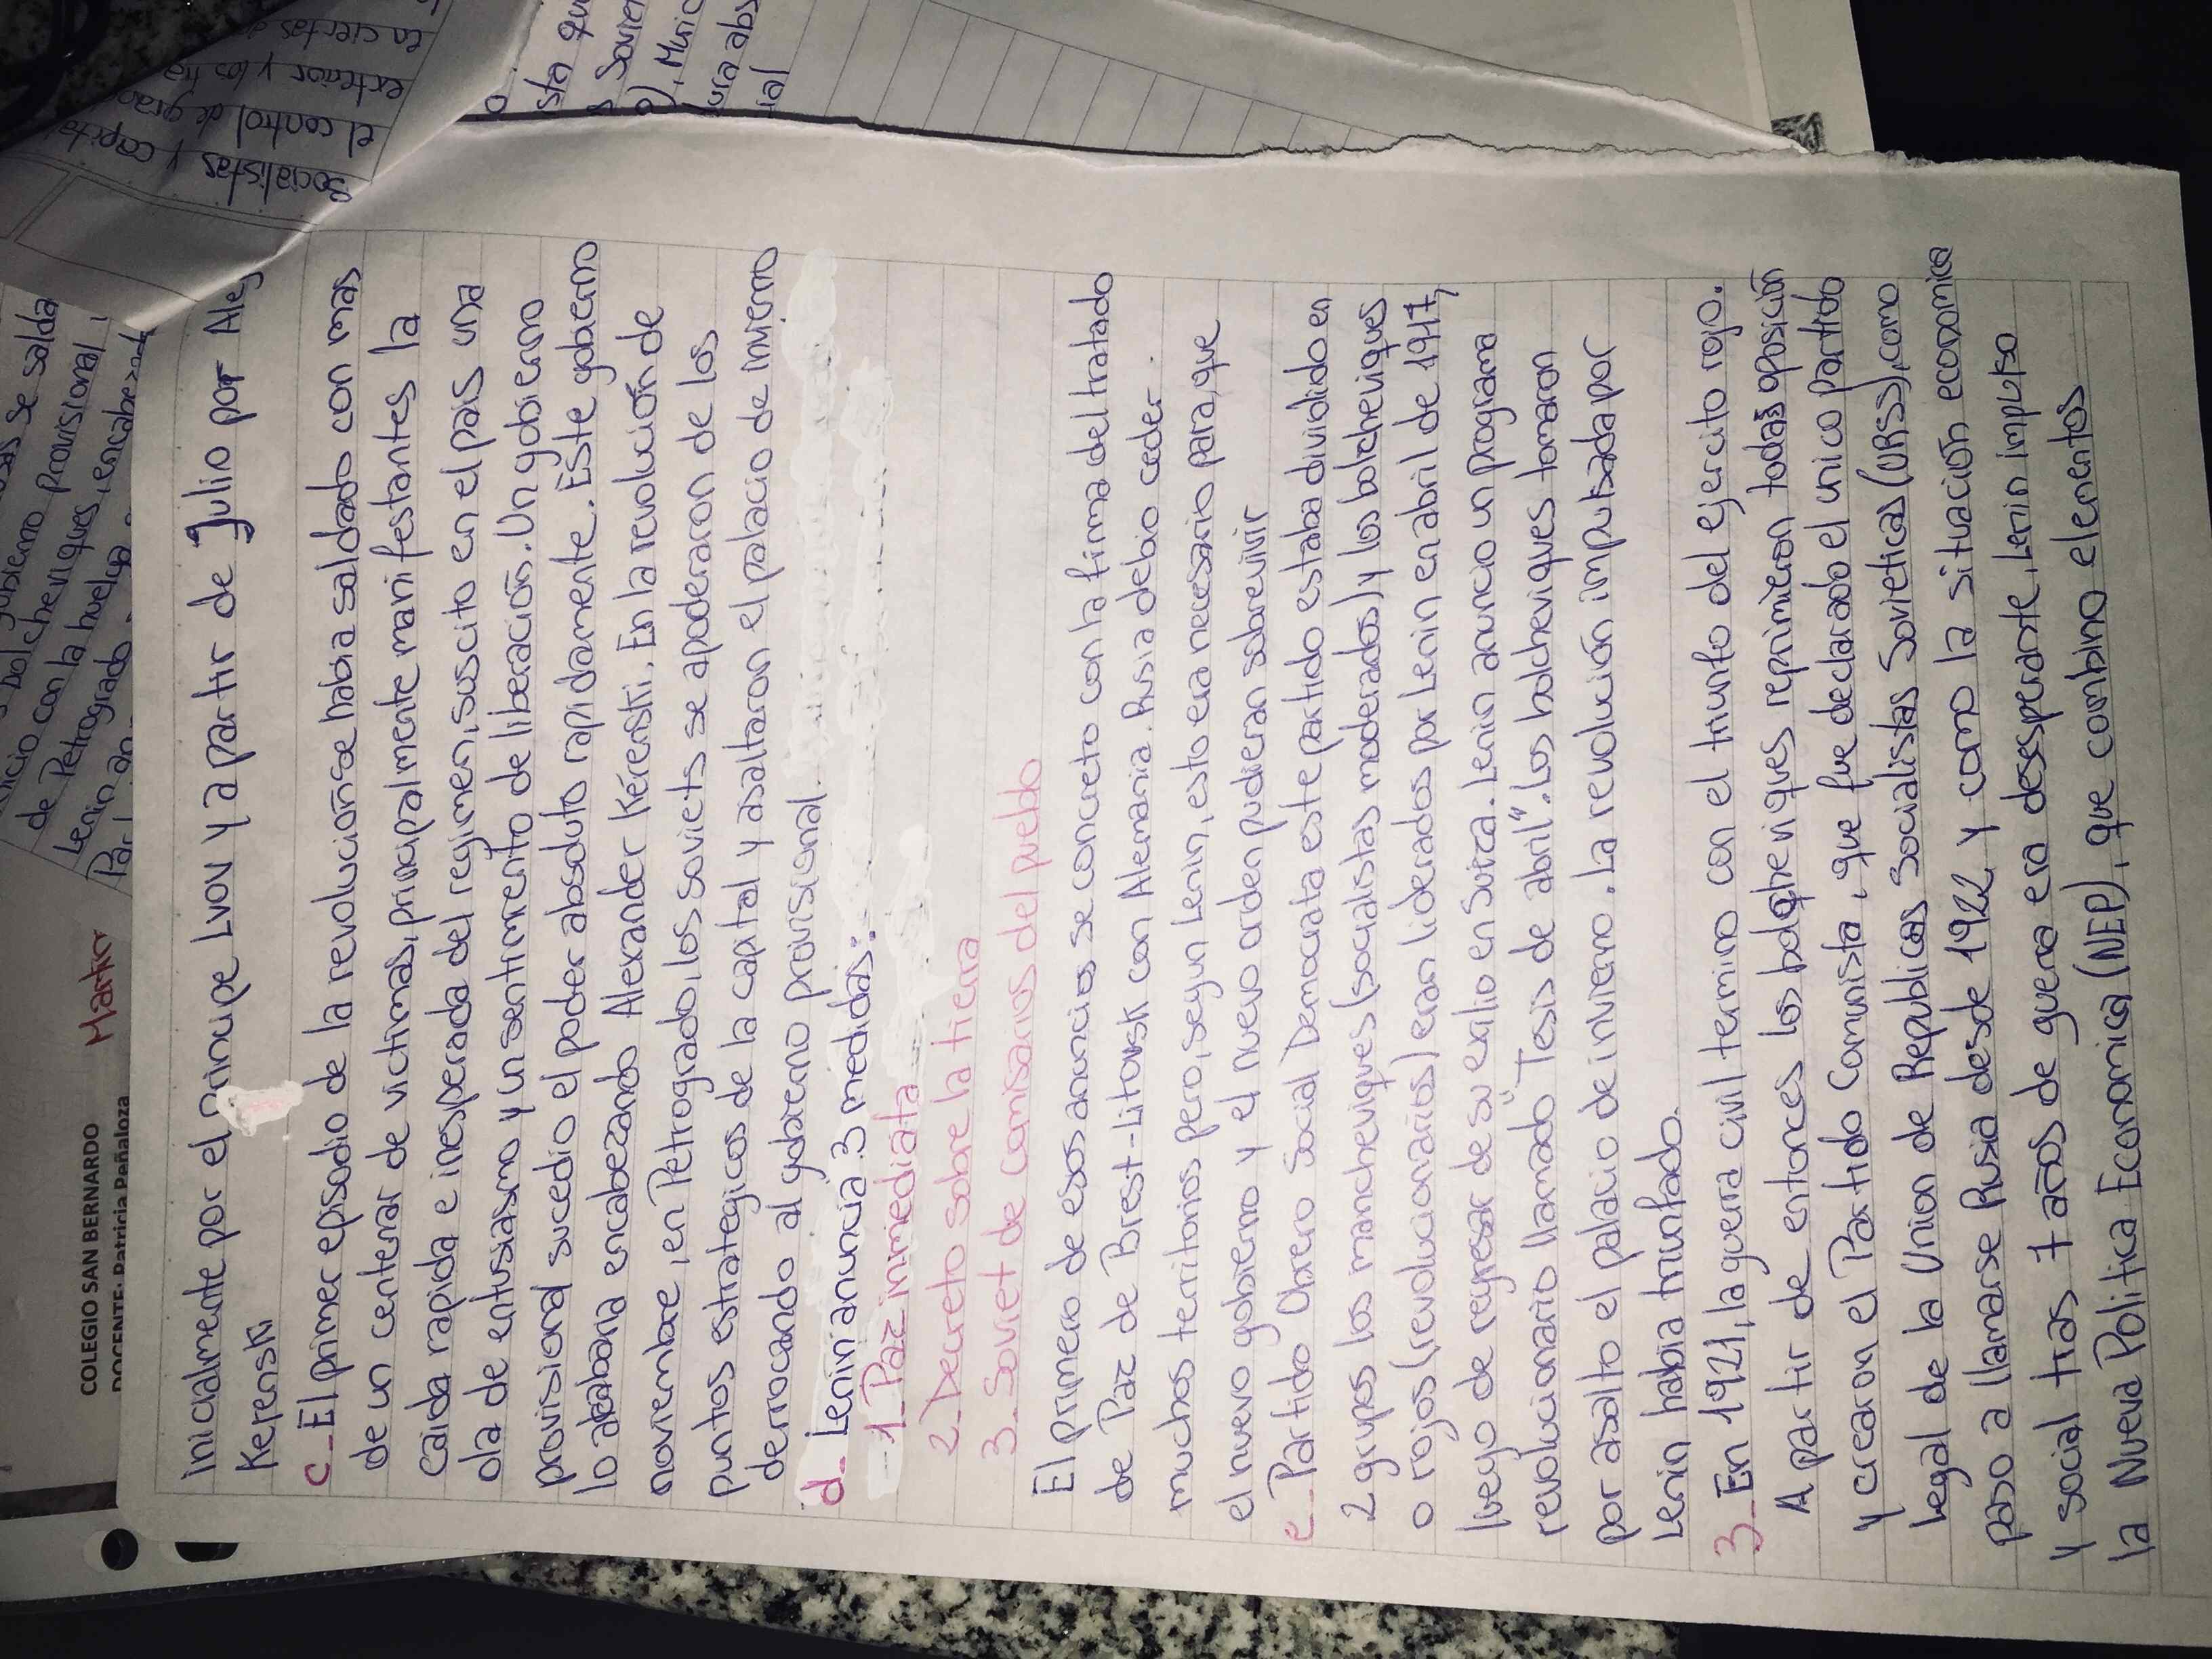 COLEGIO SAN BERNARDO
DOCENTE: Patricia Peñaloza
inicialmente por el Principe Lvov y a partir de Julio por Ale
Kerenski
c_ El primer episodio de la revolución se habia saldado con mas
de un centenar de victimas, principalmente manifestantes la
caida rapida e inesperada del regimen, suscito en el pais una
ola de entusiasmo y un sentimiento de liberación. Un gobierno
provisional sucedio el poder absoluto rapidamente. Este gobierno
lo acabaria encabezando Alexander Kérenski. En la revolución de
noviembre, en Petrogrado, los soviets se apoderaron de los
puntos estrategicos de la capital y asaltaron el palacio de invierno
derrocando al gobierno provisional.
d_ Lenin anuncia 3 medidas:
1_ Paz inmediata
2_ Decreto sobre la tierra
3_ Soviet de comisarios del pueblo
El primero de esos anuncios se concreto con la firma del tratado
de Paz de Brest-Litovsk con Alemania. Rusia debio ceder
muchos territorios pero, segun Lenin, esto era necesario para, que
el nuevo gobierno y el nuevo orden pudieran sobrevivir
e_ Partido Obrero Social Democrata este partido estaba dividido en
2 grupos los mancheviques (socialistas moderados) y los bolcheviques
o rojos (revolucionarios) eran liderados por Lenin en abril de 1917,
luego de regresar de su exilio en Suiza. Lenin anuncio un programa
revolucionario llamado "Tesis de abril". Los bolcheviques tomaron
por asalto el palacio de invierno. La revolución impulsada por
Lenin habia triunfado.
3_ En 1921, la guerra civil termino con el triunfo del ejercito rojo.
A partir de entonces los bolcheviques reprimieron todas oposición
y crearon el Partido Comunista, que fue declarado el unico partido
legal de la Union de Republicas Socialistas Sovieticas (URSS), como
paso a llamarse Rusia desde 1922 y como la situación economica
y social tras 7 años de guerra era desesperante, Lenin impulso
la Nueva Politica Economica (NEP), que combino elementos